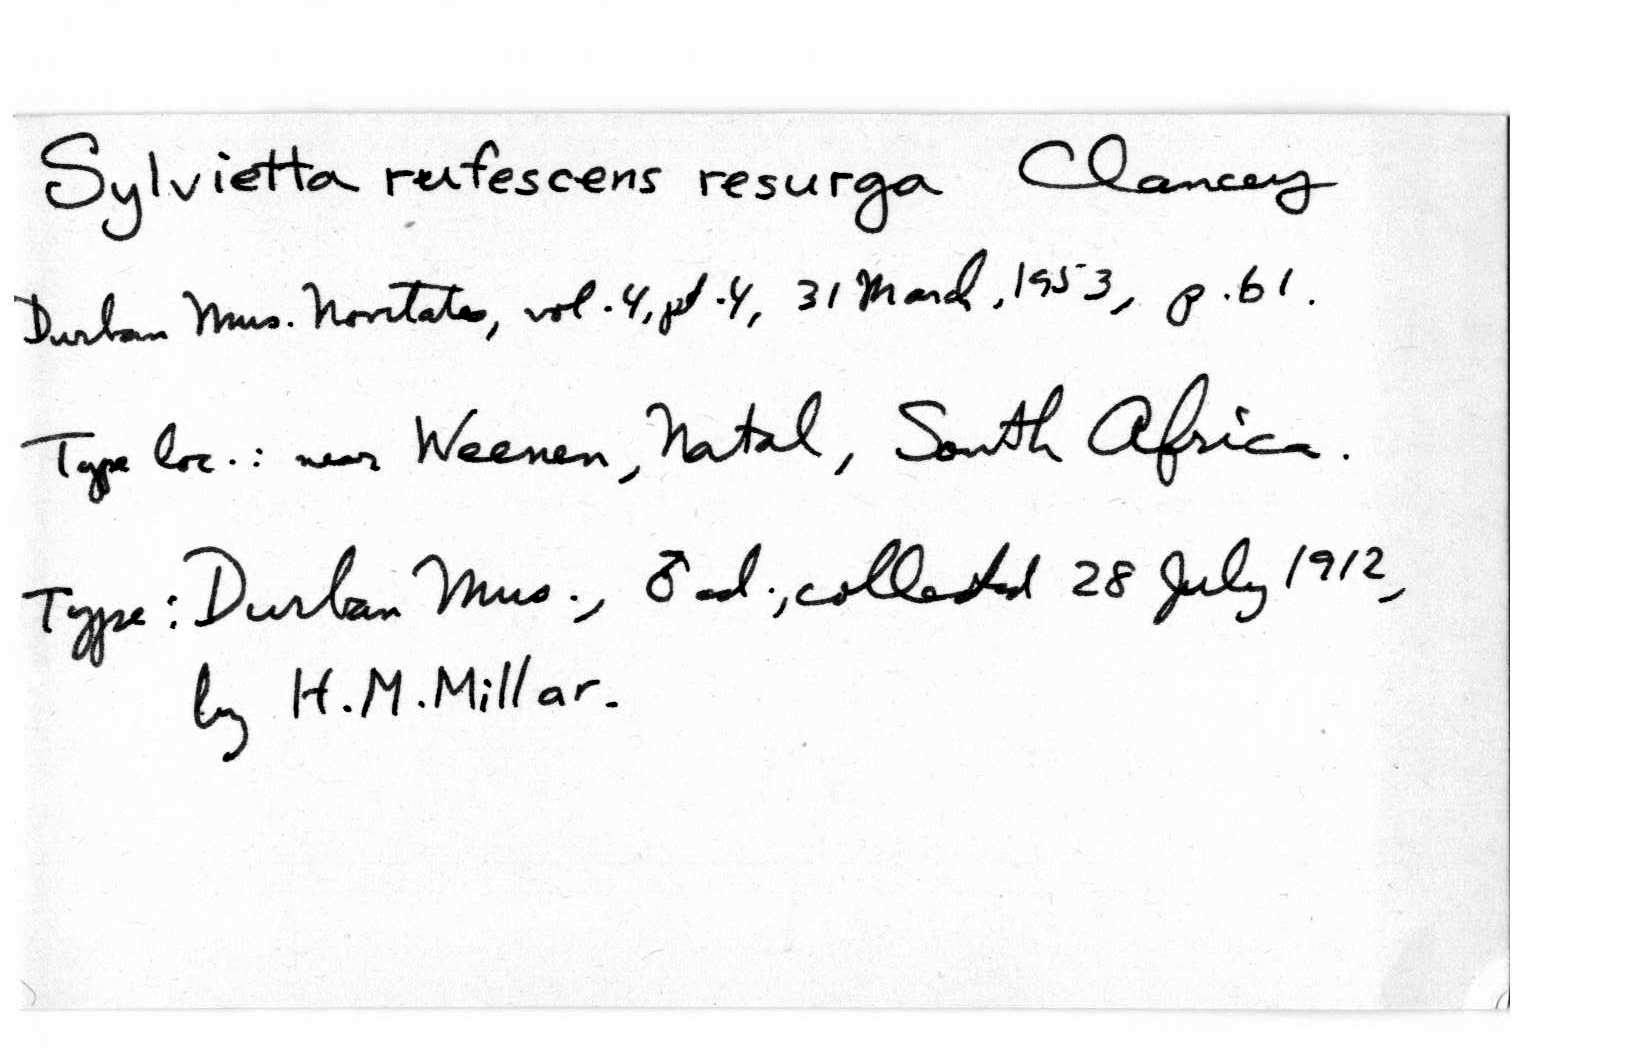 Sylvietta rufescens resurga Clancey
Durban Mus. Novitates, vol. 4, pt. 4, 31 March, 1953, p. 61.
Type loc.: near Weenen, Natal, South Africa.
Type: Durban Mus., ♂ ad., collected 28 July 1912,
by H.M. Millar.